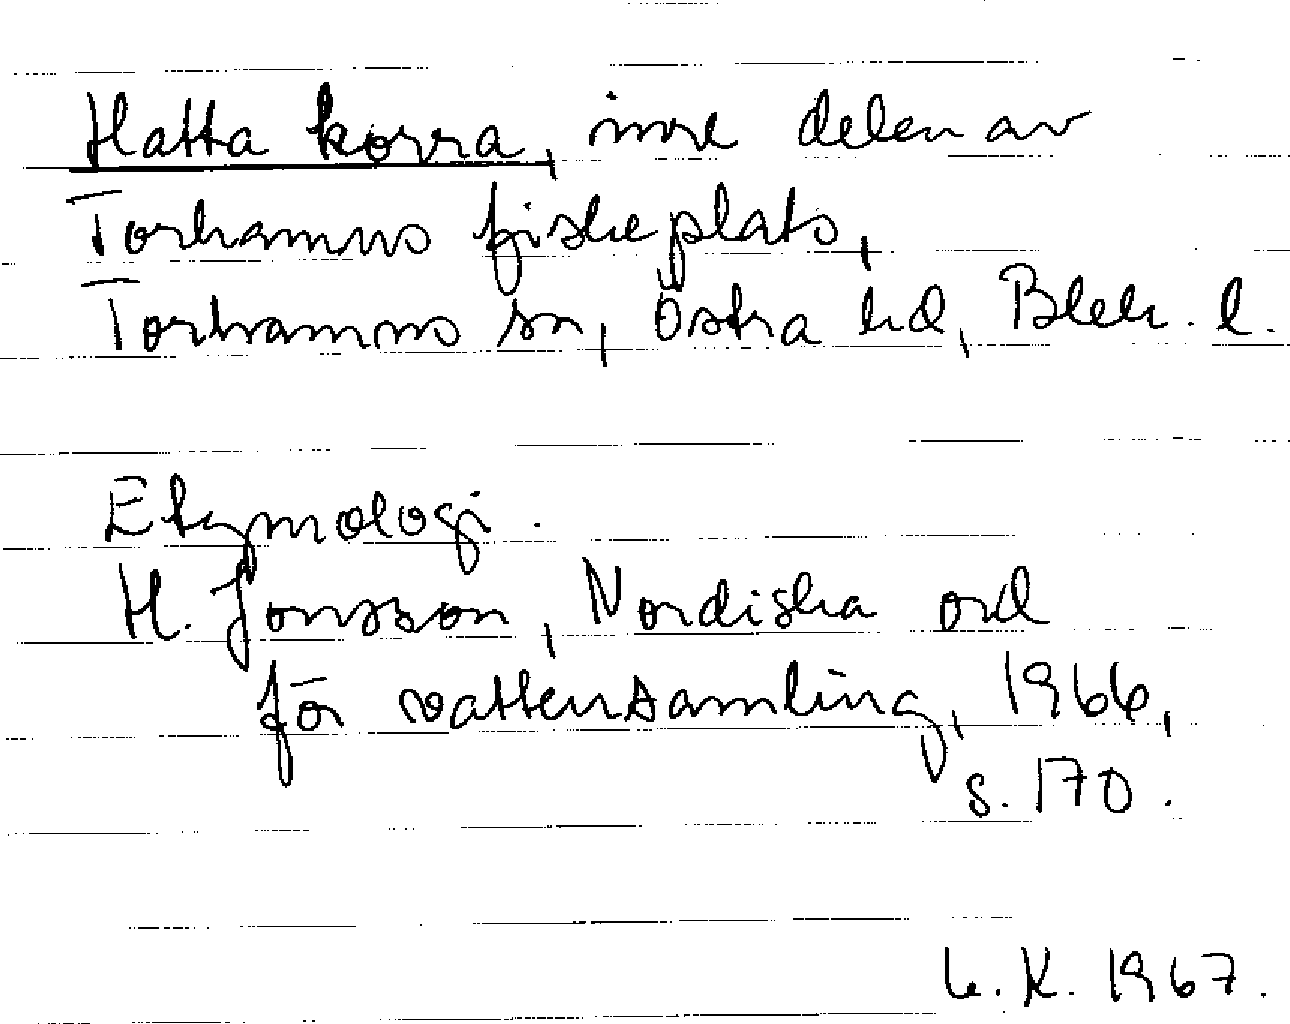 Hatta korra, inre delen av
Torhamns fiskeplats,
Torhamns sn, Östra hd, Blek. l.
Etymologi.
H. Jonsson, Nordiska ord
för vattensamling, 1966,
s. 170.
L. K. 1967.